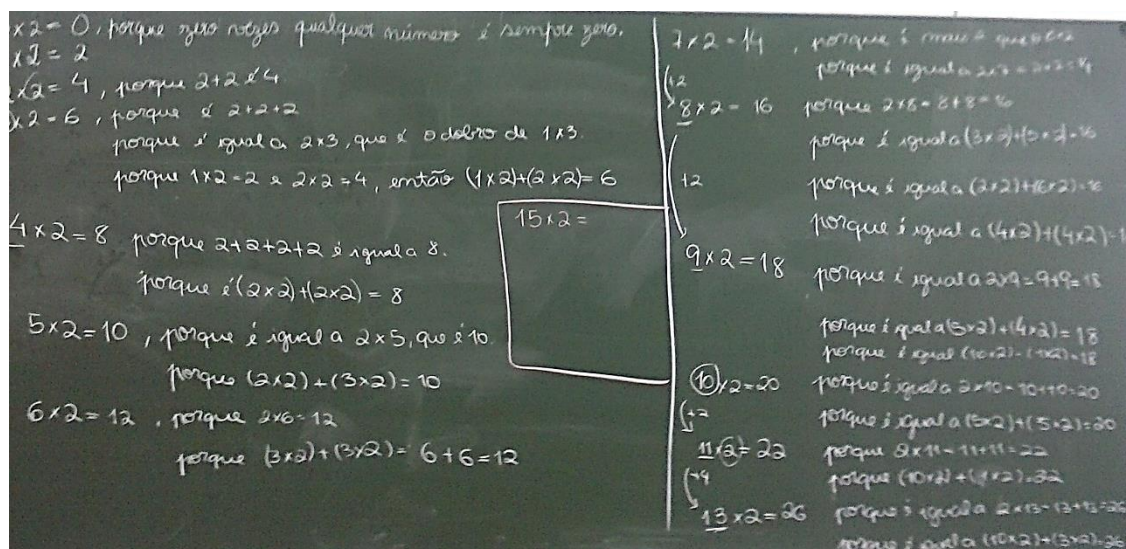 ×2=0, porque zero vezes qualquer número é sempre zero.
×2=2
×2=4, porque 2+2 é 4
×2=6, porque é 2+2+2
porque é igual a 2×3, que é o dobro de 1×3.
porque 1×2=2 e 2×2=4, então (1×2)+(2×2)=6
4×2=8 porque 2+2+2+2 é igual a 8.
porque é (2×2)+(2×2)=8
5×2=10, porque é igual a 2×5, que é 10.
porque (2×2)+(3×2)=10
6×2=12, porque 2×6=12
porque (3×2)+(3×2)=6+6=12
15×2=
7×2=14, porque é mais
porque é igual a 2×7=
+2
8×2=16 porque 2×8=8+8=16
porque é igual a (3×2)+(5×2)=16
+2
porque é igual a (2×2)+(6×2)=16
porque é igual a (4×2)+(4×2)=1
9×2=18 porque é igual a 2×9=9+9=18
porque é igual a (5×2)+(4×2)=18
porque é igual (10×2)-(1×2)=18
10×2=20 porque é igual a 2×10=10+10=20
+2
porque é igual a (5×2)+(5×2)=20
11×2=22 porque 2×11=11+11=22
+4
porque (10×2)+(1×2)=
13×2=26 porque é igual a 2×13=13+13=26
porque é igual a (10×2)+(3×2)=26